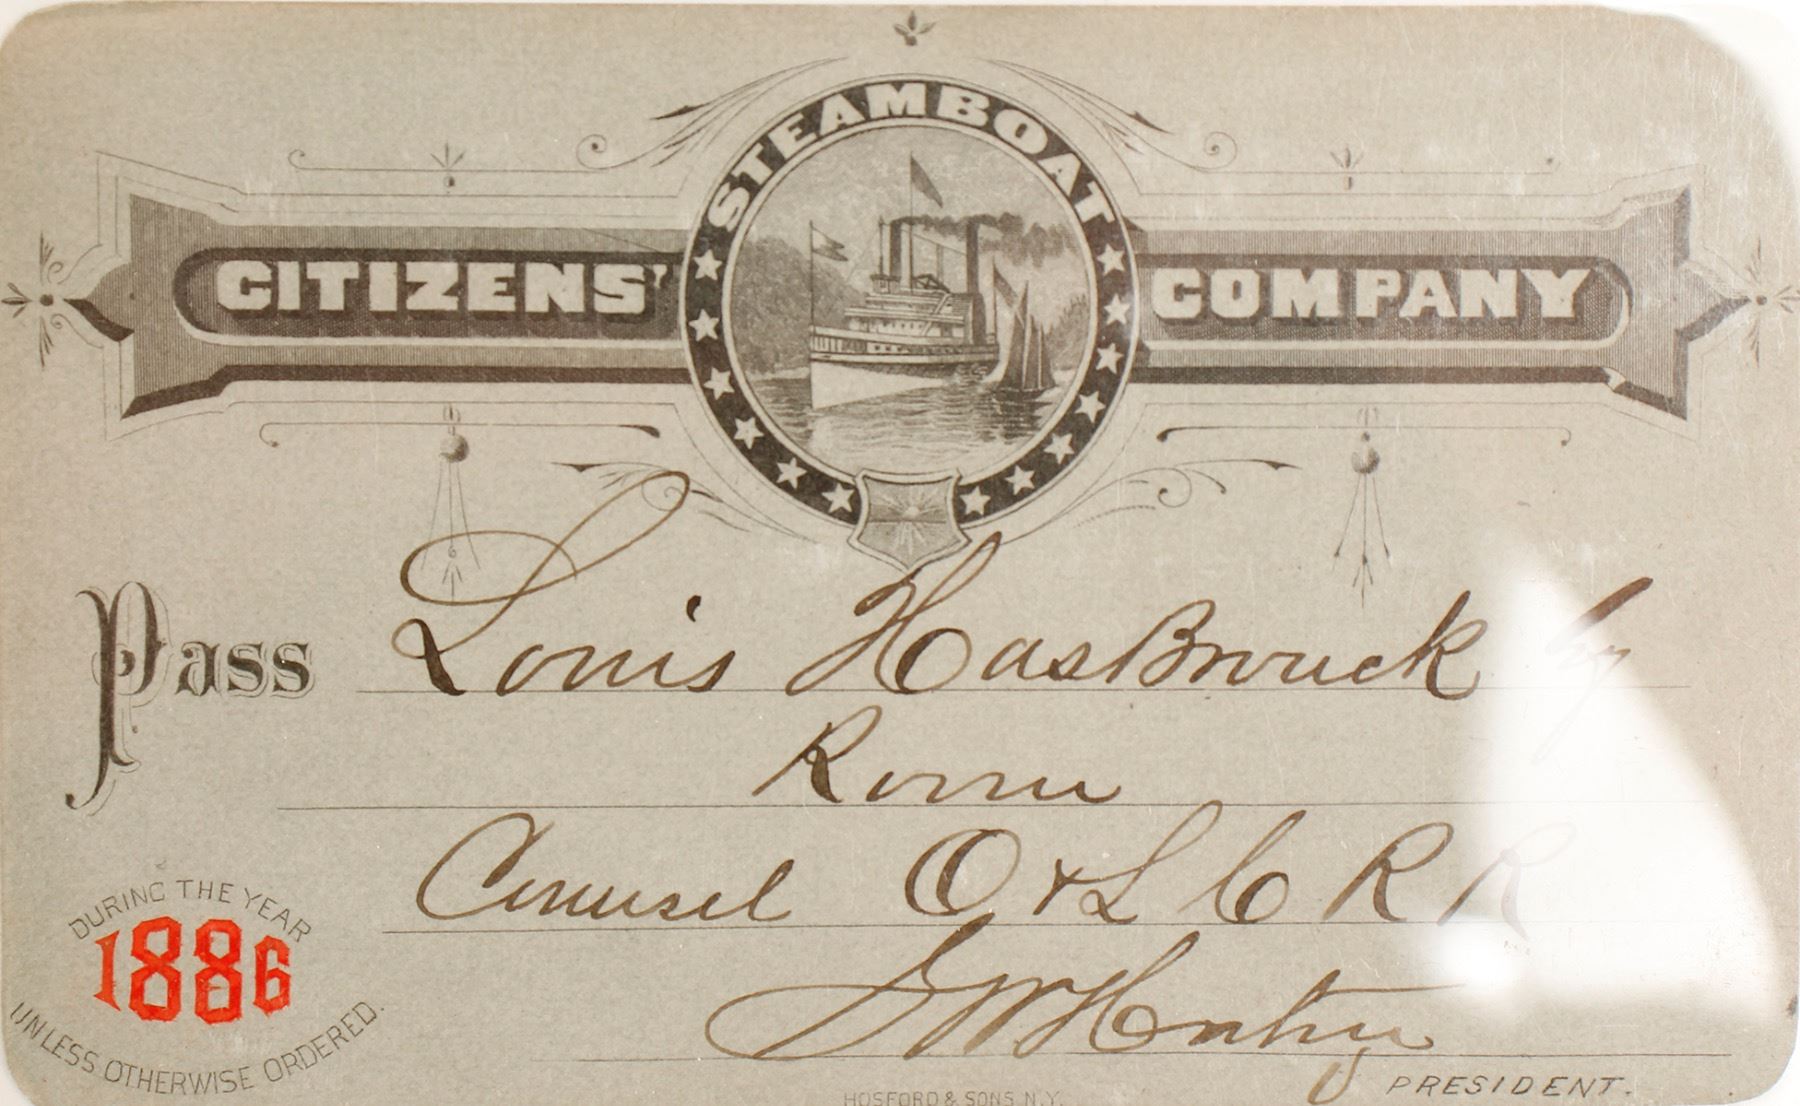 STEAMBOAT
CITIZENS' COMPANY
Pass Louis HasBrouck
Rome
Counsel O & L C R R
DURING THE YEAR
1886
UNLESS OTHERWISE ORDERED.
PRESIDENT.
HOSFORD & SONS N.Y.